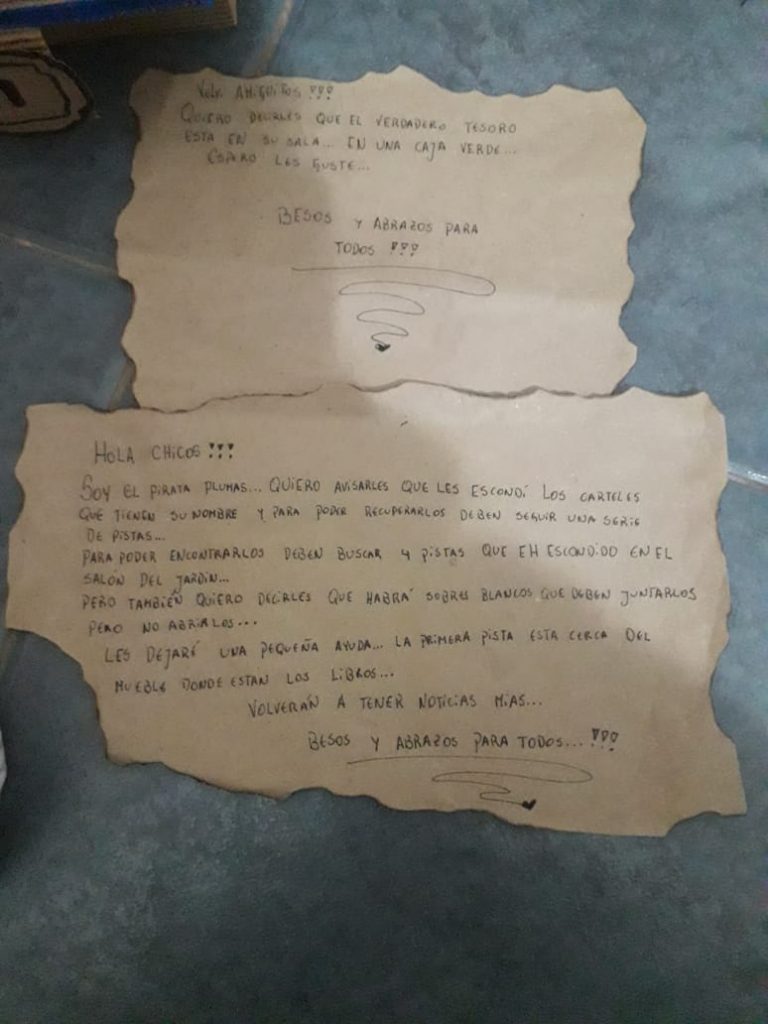 AMIGUITOS !!!
QUIERO DECIRLES QUE EL VERDADERO TESORO
ESTA EN SU SALA... EN UNA CAJA VERDE...
ESPERO LES GUSTE...
BESOS Y ABRAZOS PARA
TODOS !!!
HOLA CHICOS !!!
SOY EL PIRATA PLUMAS... QUIERO AVISARLES QUE LES ESCONDÍ LOS CARTELES
QUE TIENEN SU NOMBRE Y PARA PODER RECUPERARLOS DEBEN SEGUIR UNA SERIE
DE PISTAS...
PARA PODER ENCONTRARLOS DEBEN BUSCAR 4 PISTAS QUE EH ESCONDIDO EN EL
SALÓN DEL JARDIN...
PERO TAMBIÉN QUIERO DECIRLES QUE HABRÁ SOBRES BLANCOS QUE DEBEN JUNTARLOS
PERO NO ABRIRLOS...
LES DEJARÉ UNA PEQUEÑA AYUDA... LA PRIMERA PISTA ESTA CERCA DEL
MUEBLE DONDE ESTAN LOS LIBROS...
VOLVERÁN A TENER NOTICIAS MIAS...
BESOS Y ABRAZOS PARA TODOS... !!!